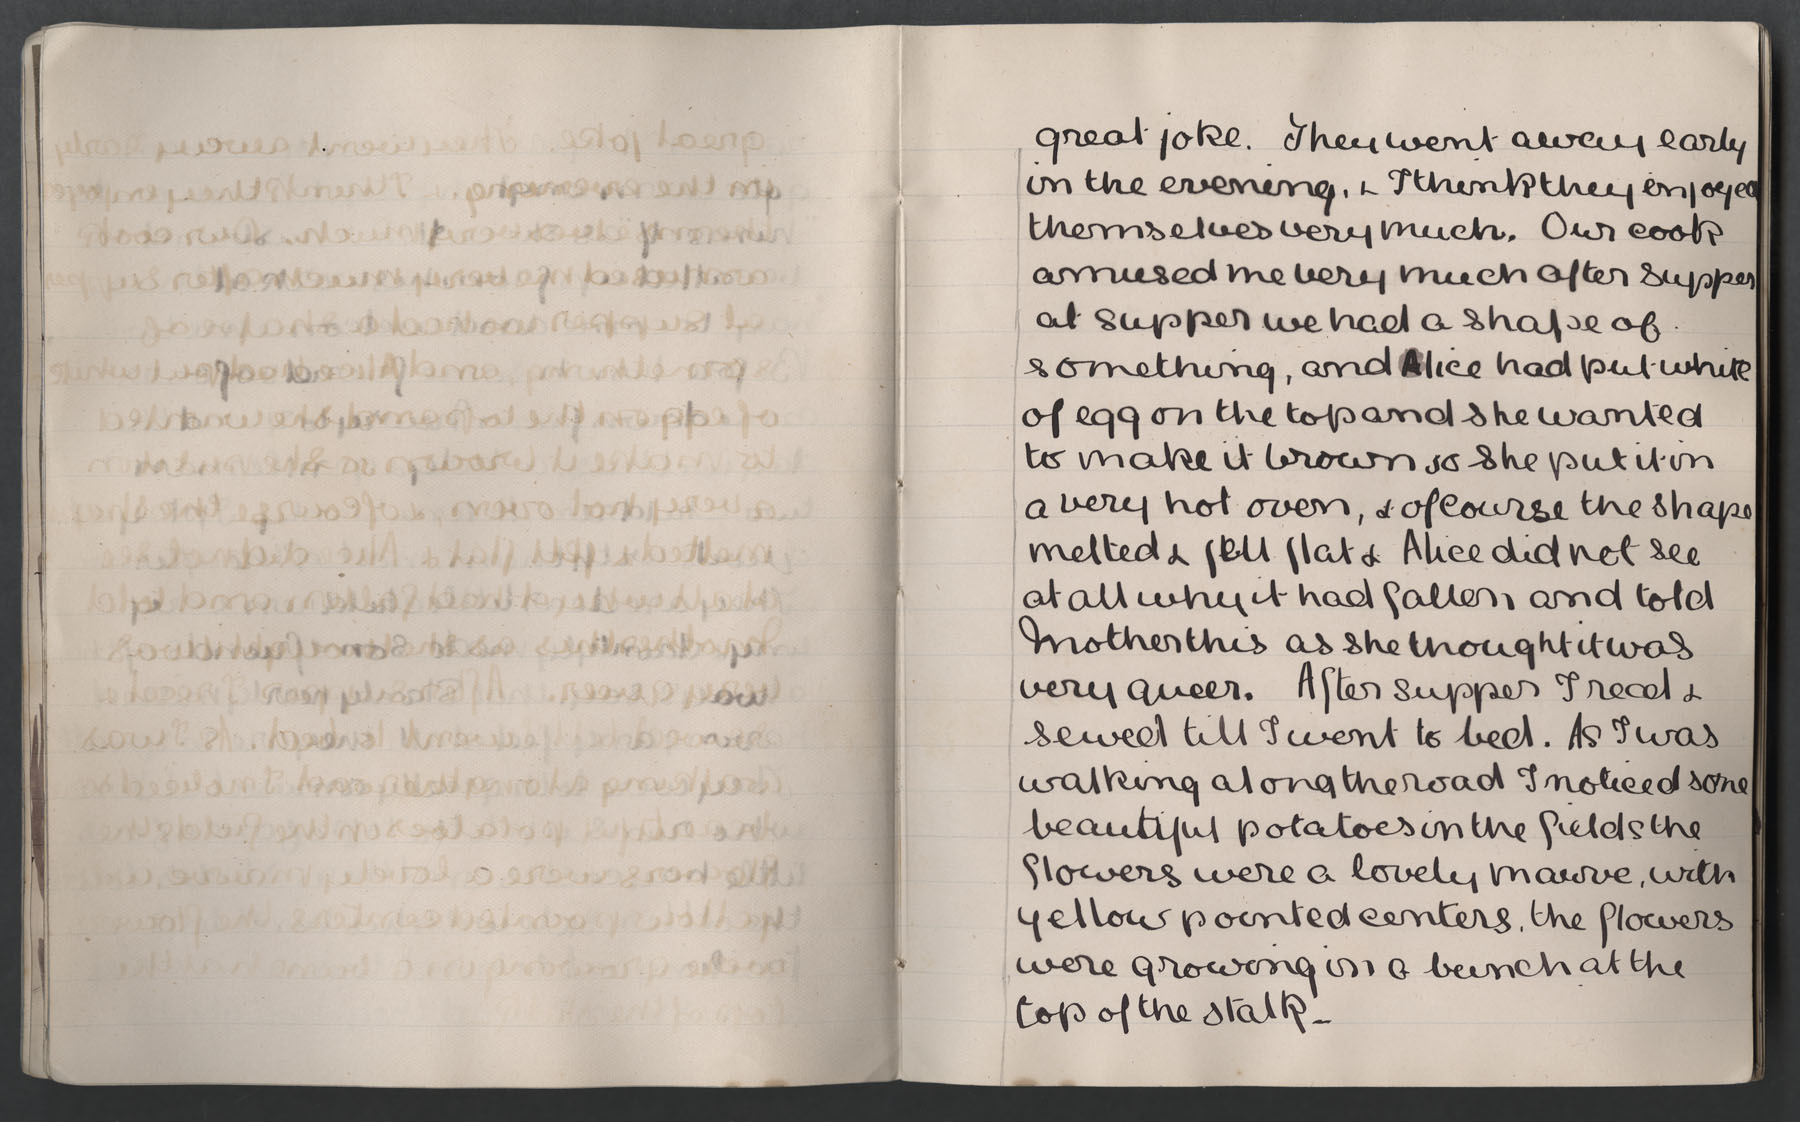 great joke. They went away early
in the evening, & I think they enjoyed
themselves very much. Our cook
amused me very much after supper
at supper we had a shape of
something, and Alice had put white
of egg on the top and she wanted
to make it brown so she put it in
a very hot oven, & of course the shape
melted & fell flat & Alice did not see
at all why it had fallen and told
Mother this as she thought it was
very queer. After supper I read &
sewed till I went to bed. As I was
walking along the road I noticed some
beautiful potatoes in the fields the
flowers were a lovely mauve, with
yellow pointed centers, the flowers
were growing in a bunch at the
top of the stalk_